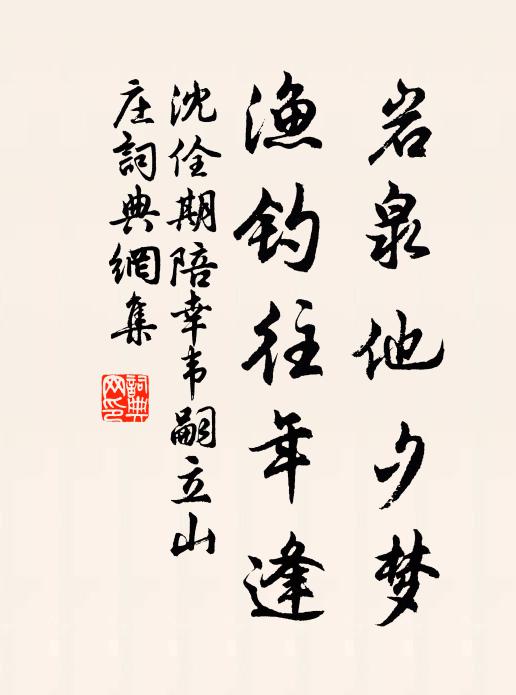 岩泉他夕梦
渔钓往年逢
沈佺期陪幸韦嗣立山
庄詞典網集
詞典
网印